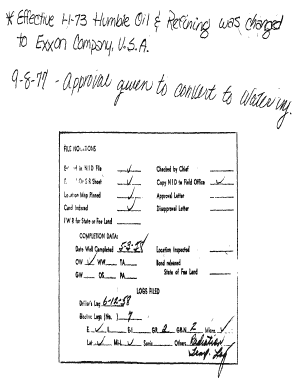 * Effective 1-1-73 Humble Oil & Refining was changed
to Exxon Company, U.S.A.
9-8-77 - Approval given to convert to Watering.
FILE NOTATIONS
in NID File ✓ Checked by Chief
S R Sheet ✓ Copy NID to Field Office ✓
Location Map Pinned ✓ Approval Letter
Card Indexed ✓ Disapproval Letter
I W R for State or Fee Land
COMPLETION DATA:
Date Well Completed 5-3-58 Location Inspected
OW ✓ WW TA Bond released
GW OS PA State of Fee Land
LOGS FILED
Driller's Log 6-12-58
Electric Logs (No. ) 7
E ✓ I E-I GR 2 GR-N 2 Micro ✓
Lat ✓ Mi-L ✓ Sonic Others Radiation
Temp. Log